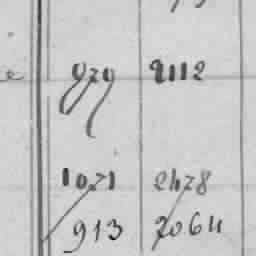 929 2112
1071 2478
913 2064